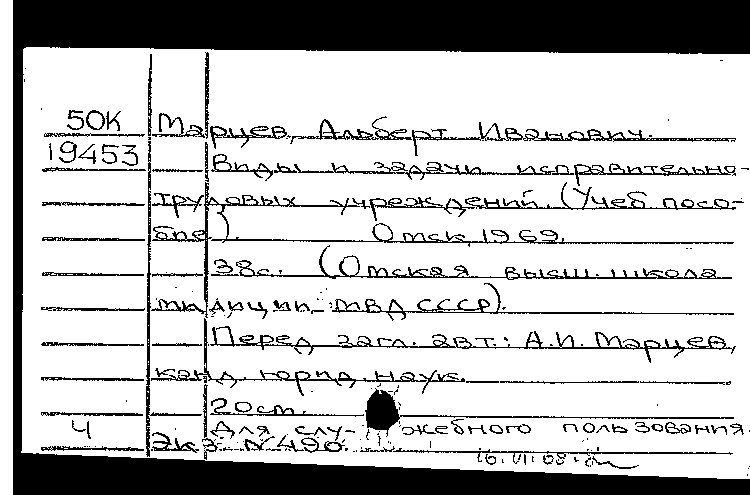 50К Марцев, Альберт Иванович.
19453 Виды и задачи исправительно-
трудовых учреждений. (Учеб. посо-
бие). Омск, 1969.
38с. (Омская высш. школа
милиции МВД СССР).
Перед загл. авт.: А.И. Марцев,
канд. юрид. наук.
20см.
Для служебного пользования.
4 Экз. №490.
16.VII.08.